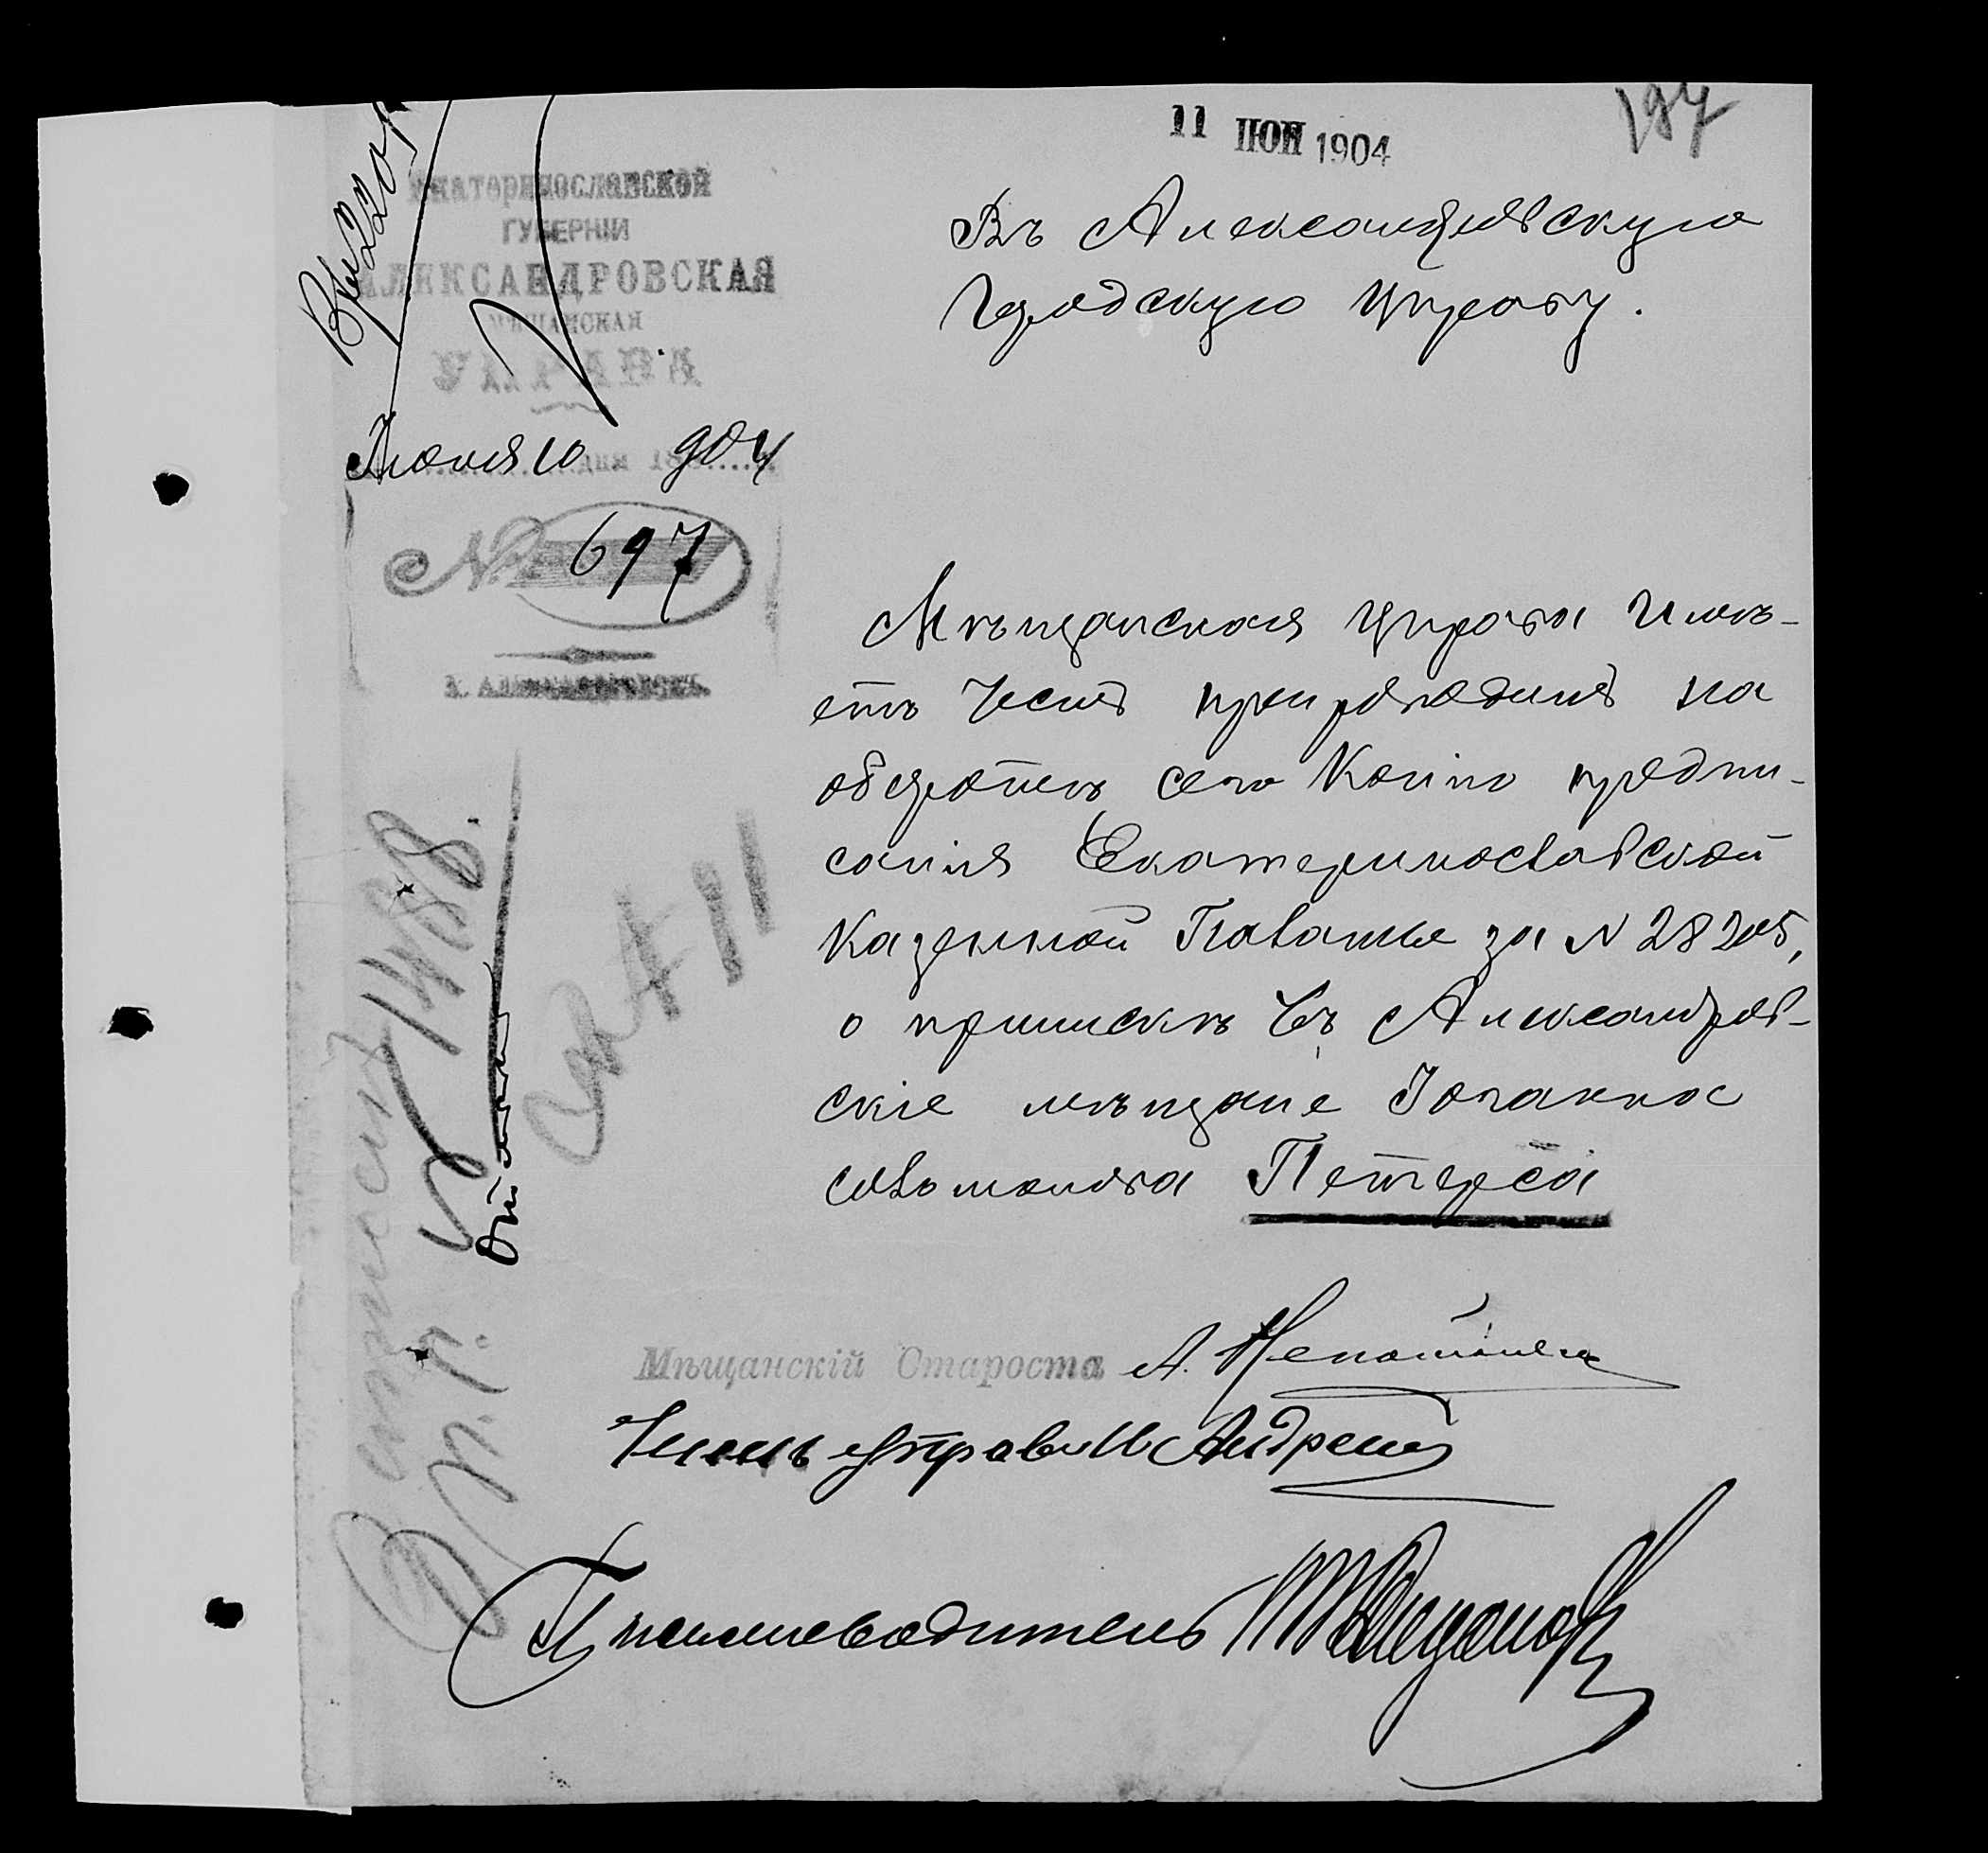 11 ІЮН 1904
197
Екатеринославской
ГУБЕРНІИ
АЛЕКСАНДРОВСКАЯ
МѢЩАНСКАЯ
УПРАВА
Іюня 10 дня 904
№ 697
г. Александровскъ.
Въ Александровскую
Городскую Управу.
Мѣщанская Управа Имѣ-
етъ Честь препроводить на
оборотѣ сего Копію предпи-
санія Екатеринославской
Казенной Палаты за № 28205,
о припискѣ въ Александров-
скіе мѣщане Іоганна
Соломонова Петерса
1488.
Мѣщанскій Староста А.
Членъ Управы Андреев
Письмоводитель